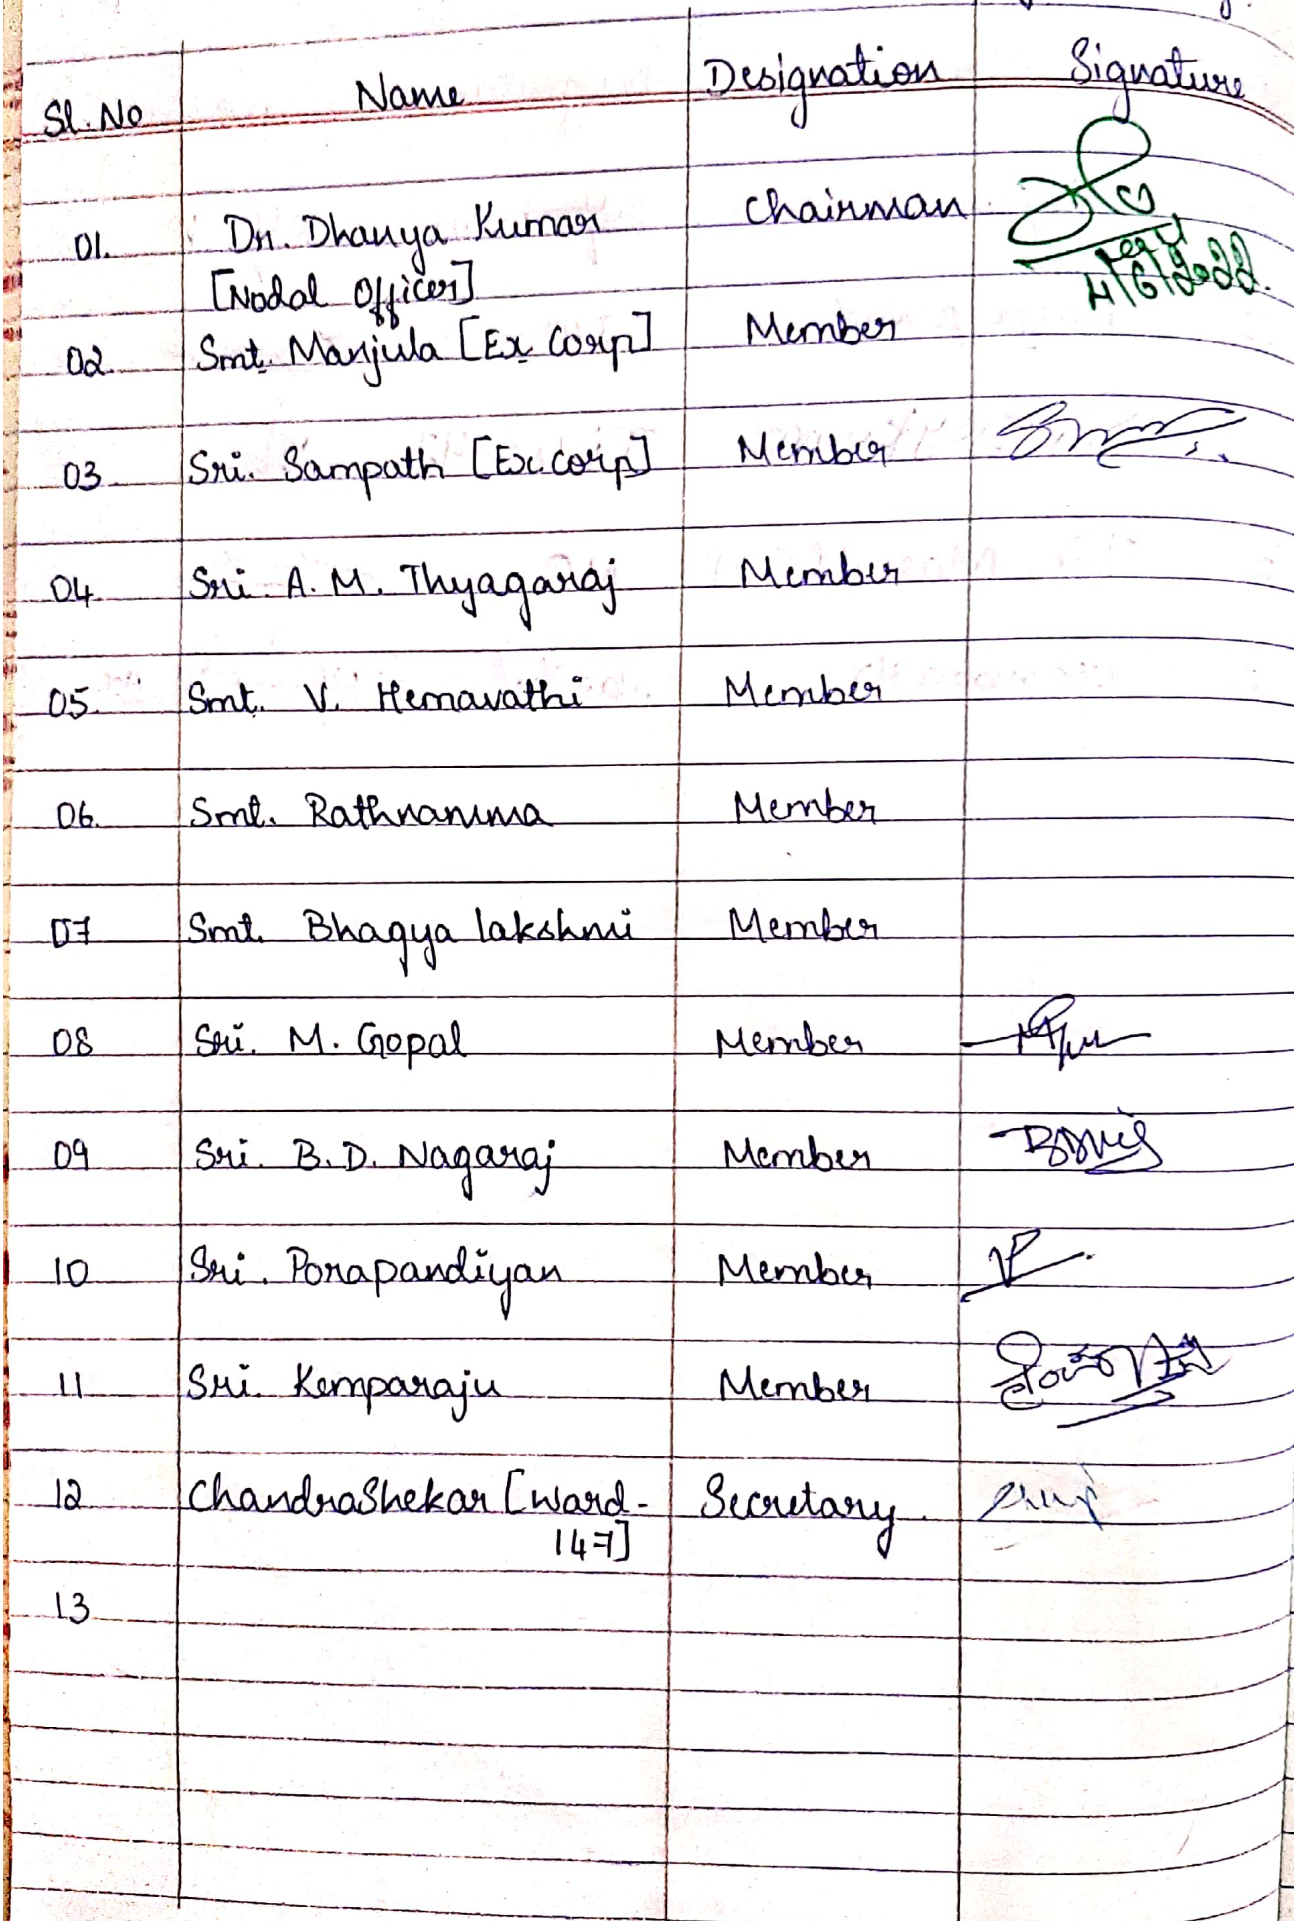 Sl. No Name Designation Signature
01. Dr. Dhanya Kumar Chairman
[Nodal Officer]
4/6/2022.
02. Smt. Manjula [Ex. Corp] Member
03 Sri. Sampath [Ex. Corp] Member
04. Sri. A. M. Thyagaraj Member
05. Smt. V. Hemavathi Member
06. Smt. Rathnamma Member
07 Smt. Bhagya lakshmi Member
08 Sri. M. Gopal Member
09 Sri. B. D. Nagaraj Member
10 Sri. Porapandiyan Member
11 Sri. Kemparaju Member
12 ChandraShekar [Ward- Secretary.
147]
13